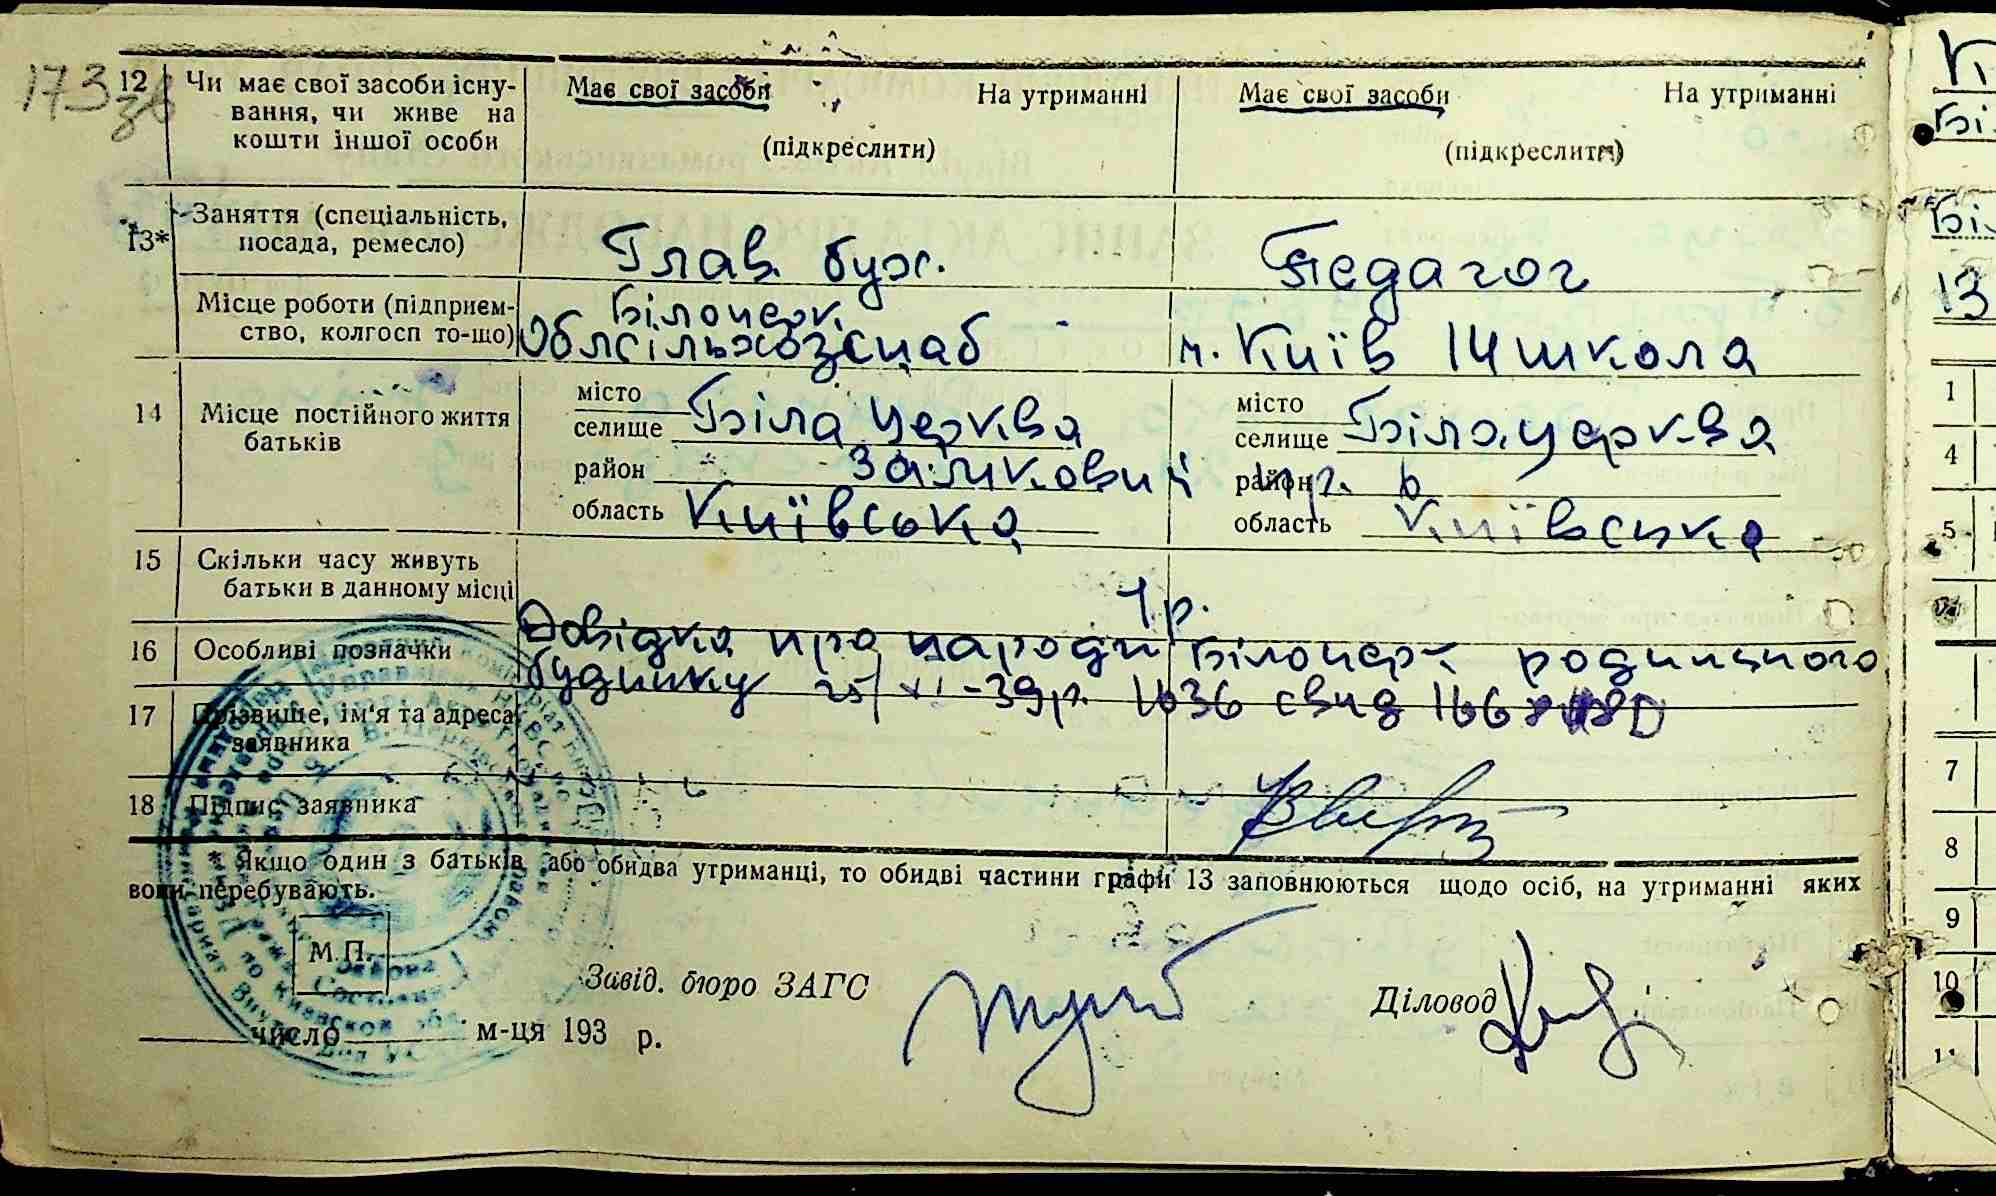 173
зв
12 Чи має свої засоби існу-
вання, чи живе на
кошти іншої особи
Має свої засоби На утриманні
(підкреслити)
Має свої засоби На утриманні
(підкреслити)
13* Заняття (спеціальність,
посада, ремесло)
Глав. бух.
Педагог
Місце роботи (підприєм-
ство, колгосп то-що)
Білоцерк.
Облсільхозснаб
м. Київ 14 школа
14 Місце постійного життя
батьків
місто
селище Біла Церква
район Замковий
область Київська
місто
селище Біла Церква
район
область Київська
15 Скільки часу живуть
батьки в данному місці
1 р.
16 Особливі позначки
Довідка про народж Білоцерк родильного
будинку 25/XI-39р. 1636 свид
17 Прізвище, ім'я та адреса
заявника
18 Підпис заявника
* Якщо один з батьків або обидва утриманці, то обидві частини графи 13 заповнюються щодо осіб, на утриманні яких
вони перебувають.
М.П.
Завід. бюро ЗАГС
Діловод
число м-ця 193 р.
Бі
Бі
13
1
4
5
7
8
9
10
11